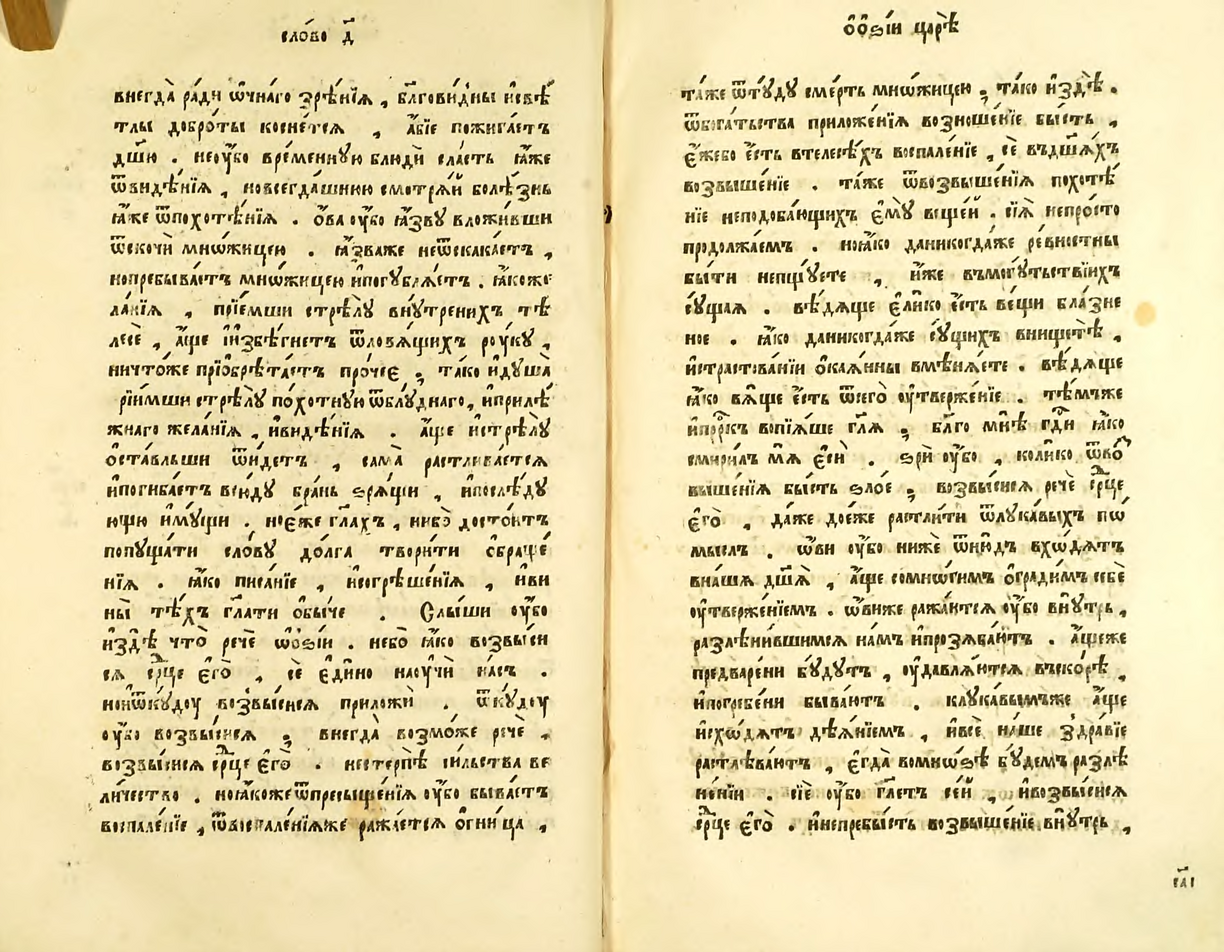 сло́во д҃
внегда̀ ра́ди ѡ҆чнаго зрѣ́нїѧ , бл҃гови́дны исвѣ́
тлы доброты косне́тсѧ , а҆́бїе пожига́етъ
дш҃ю . неоу҆́бо вре́менную блюдѝ сла́сть ꙗ҆́же
ѿвидѣ́нїѧ , новсегда́шнюю смотрѧ́й болѣ́знь
ꙗ҆́же ѿпохотѣ́нїѧ . ѻ҆́ва оу҆́бо ꙗ҆́зву вложи́вши
ѿскочѝ мнѡ́жицею . ꙗ҆́зваже неѿскака́етъ ,
нопребыва́етъ мнѡ́жицею и҆погублѧ́етъ . ꙗ҆́коже
ла́нїѧ , прїе́мши стрѣлꙋ̀ внꙋ́тренихъ тѣ
лесѐ , а҆́ще и҆и҆збѣ́гнетъ ѿловѧ́щихъ рꙋкꙋ̀ ,
ничто́же прїѡбрѣта́етъ про́чее , та́ко и҆дꙋша̀
рїи́мши стрѣлꙋ̀ похо́тную ѿблꙋ́днаго, и҆прилѣ́
жнаго жела́нїѧ , и҆видѣ́нїѧ . а҆́ще и҆стрѣлꙋ̀
ѻ҆ста́вльши ѿи́детъ , сама̀ растлива́етсѧ
и҆погиба́етъ всю́дꙋ бра́нь ѕрѧ́щи , и҆послѣ́дꙋ
ющю и҆мꙋ́щи . ное́же гл҃ахъ , ни́бо досто́итъ
попꙋща́ти сло́вꙋ до́лга твори́ти ѻ҆браще́
нїѧ . ꙗ҆́ко писа́нїе , и҆согрѣше́нїѧ , и҆ви
ны̀ тѣ́хъ гл҃ати ѻ҆бы́че . Слы́ши оу҆́бо
и҆здѣ̀ что̀ речѐ ѡ҆ѻ҆ѕі́и . не́бо ꙗ҆́ко возвы́си
сѧ ср҃це є҆гѡ̀ , сѐ є҆ди́но наоучѝ на́съ .
нои҆ѿкꙋ́доу возвы́сисѧ приложѝ . ѿкꙋ́доу
оу҆́бо возвы́сисѧ , внегда̀ возмо́же речѐ ,
возвы́сисѧ ср҃це є҆гѡ̀ . нестерпѣ̀ си́льства ве
ли́чество . ноꙗ҆́коже ѿпресыще́нїѧ оу҆́бо быва́етъ
воспале́нїе , ѿвоспале́нїѧже ража́етсѧ ѻ҆гни́ца ,
ѻ҆ѻ҆ѕі́и царѣ̀
та́же ѿтꙋ́дꙋ сме́рть мнѡ́жицею , та́ко и҆здѣ̀ .
ѿбога́тьства приложе́нїѧ возноше́нїе бы́сть ,
є҆́жебо є҆́сть втелесѣ́хъ воспале́нїе , сѐ въдш҃а́хъ
возвыше́нїе . та́же ѿвозвыше́нїѧ похотѣ́
нїе неподоба́ющихъ є҆мꙋ̀ веще́й . сїѧ̀ непро́сто
продолжа́емъ . ноꙗ҆́ко даникогда́же ре́внистны
бы́ти непщꙋ́ете , и҆́же въмогꙋ́тьствїихъ
сꙋ́щаѧ . вѣ́дѧще є҆ли́ко є҆́сть ве́щи бла́зне
ное . ꙗ҆́ко даникогда́же сꙋ́щихъ внищетѣ̀ ,
и҆страстова́нїи ѻ҆каѧ́нны вмѣнѧ́ете . вѣ́дѧще
ꙗ҆́ко вѧ́ще є҆́сть ѿсего̀ оу҆твержде́нїе . тѣ́мъже
и҆прⷪ҇ркъ вопїѧ́ше гл҃ѧ , бл҃го мнѣ̀ гдⷭ҇и ꙗ҆́ко
смири́лъ мѧ̀ є҆сѝ . ѕрѝ оу҆́бо , коли́ко ѿво
вы́шенїѧ бы́сть ѕло́е , возвы́сисѧ речѐ ср҃це
є҆гѡ̀ , да́же досе́же растли́ти ѿлꙋка́выхъ пѡ́
мыслъ . ѡ҆́ви оу҆́бо нижѐ ѿню́дъ вхо́дѧтъ
вна́шѧ дш҃ѧ̀ , а҆́ще сомно́гимъ ѻ҆гради́мъ себѐ
оу҆твержде́нїемъ . ѡ҆́виже ража́ютсѧ оу҆́бо внꙋ́трь ,
разлѣни́вшимсѧ на́мъ и҆прозѧба́ютъ . а҆́щеже
предваре́ни бꙋ́дꙋтъ , оу҆давлѧ́ютсѧ въско́рѣ ,
и҆погребе́ни быва́ютъ . клꙋка́вымъже а҆́ще
и҆схо́дѧтъ дѣѧ́нїемъ , и҆всѐ на́ше здра́вїе
растлѣва́ютъ , є҆гда̀ вомно́зѣ бꙋ́демъ разлѣ
не́нїи . сїѐ оу҆́бо гл҃етъ се́й , и҆возвы́сисѧ
ср҃це є҆гѡ̀ . и҆непребы́сть возвыше́нїе внꙋ́трь ,